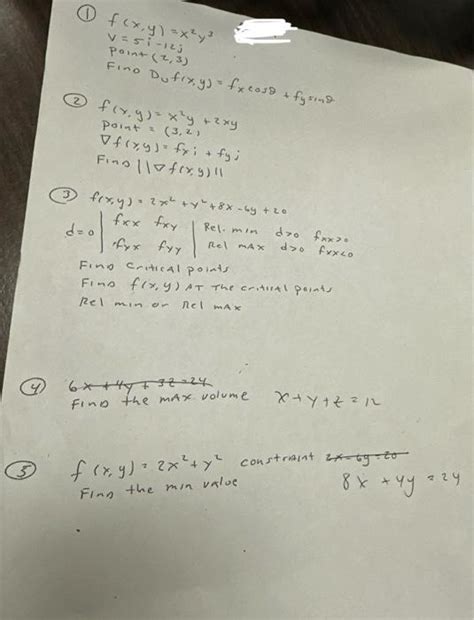 ① f(x,y) = x²y³
V = 5i - 12j
Point (2,3)
Find Duf(x,y) = fx cosθ + fy sinθ
② f(x,y) = x²y + 2xy
Point = (3,2)
∇f(x,y) = fxi + fyj
Find ||∇f(x,y)||
③ f(x,y) = 2x² + y² + 8x - 6y + 20
d=0 | fxx fxy | Rel. min d>0 fxx>0
| fyx fyy | Rel max d>0 fxx<0
Find critical points
Find f(x,y) AT the critical points
Rel min or Rel max
④ 6x + 4y + 3z = 24
Find the max volume x+y+z = 12
⑤ f(x,y) = 2x² + y² constraint 2x - 6y = 20
Find the min value 8x + 4y = 24